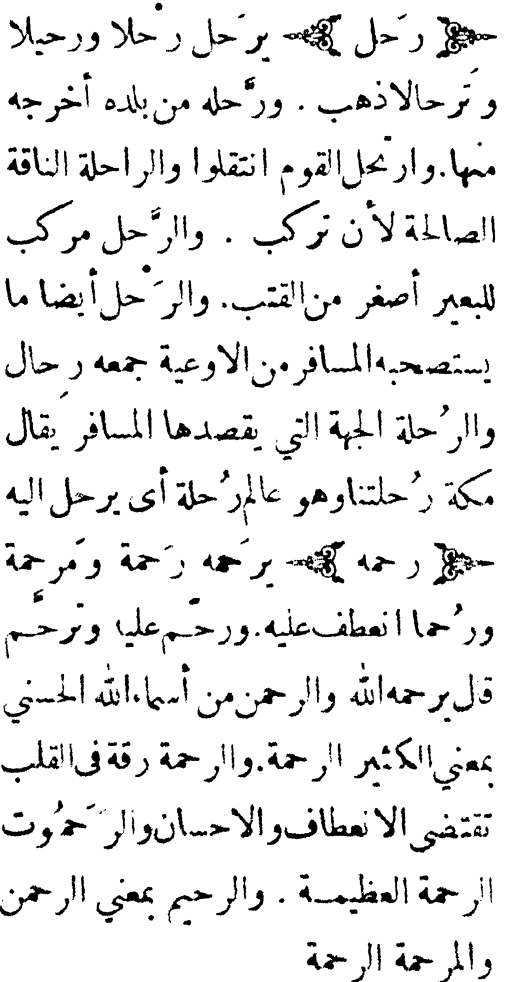 ﴿ رَحل ﴾ يرحَل رحْلا ورحيلا
وتَرحالا ذهب . ورحَّله من بلده أخرجه
منها. وارتحل القوم انتقلوا والراحلة الناقة
الصالحة لأن تركب . والرَّحل مركب
للبعير أصغر من القتب. والرَحْل أيضا ما
يستصحبه المسافر من الاوعية جمعه رِحال
والرُحلة الجهة التي يقصدها المسافر يقال
مكة رُحلتنا وهو عالم رُحلة أى يرحل اليه
﴿ رحمه ﴾ يرحَمه رَحمة ومَرحمة
ورُحما انعطف عليه. ورحَّم عليه وترحَّم
قال يرحمه الله والرحمن من أسماء الله الحسني
بمعني الكثير الرحمة. والرحمة رقة فى القلب
تقتضى الانعطاف والاحسان والرَحَمُوت
الرحمة العظيمة . والرحيم بمعني الرحمن
والمرحمة الرحمة